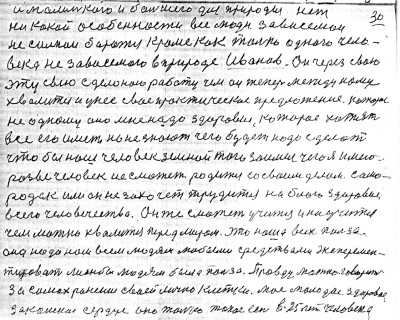 и малинкого и большего для природы нет
30
ни какой особенности все люди зависемаи
не силнои бароты кроме как толко одного чело-
века не зависемого в природе Иванов. Он через свою
эту свою сделоною работу чем он теперь между нами
хвалится и умее свае практическое предложение.
не одному оно мне надо здоровие, которае хотят
все его иметь но не знают чего будет надо сделоть
что бы наш человек земной того занимался чего я имею
розве человек не сможет родится со своим делом. само-
родак или он не захочет трудится на благо здоровие
всего человечества. Он же сможет учится и научится
чем можно хвалится перед миром. Это наша всех полза.
она надо нам всем людям любыми средствами эксперемен-
тироват лиш бы людям была полза. Правду можно говорить
за самахранение своей лично клетки. мое молодае здоровае
заколенае сердце оно толко такое как в 25 лет человека